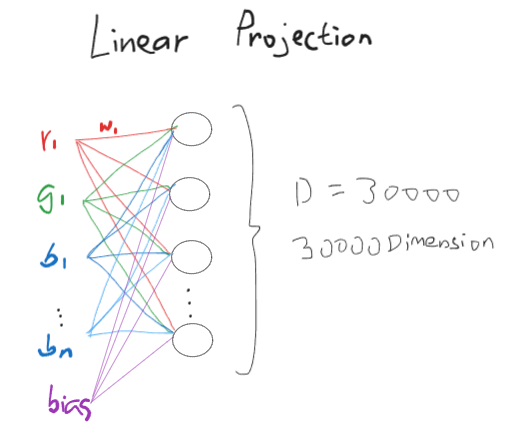 Linear Projection
r1 w1
g1
b1
⋮ ⋮
bn
bias
D = 30000
30000 Dimension